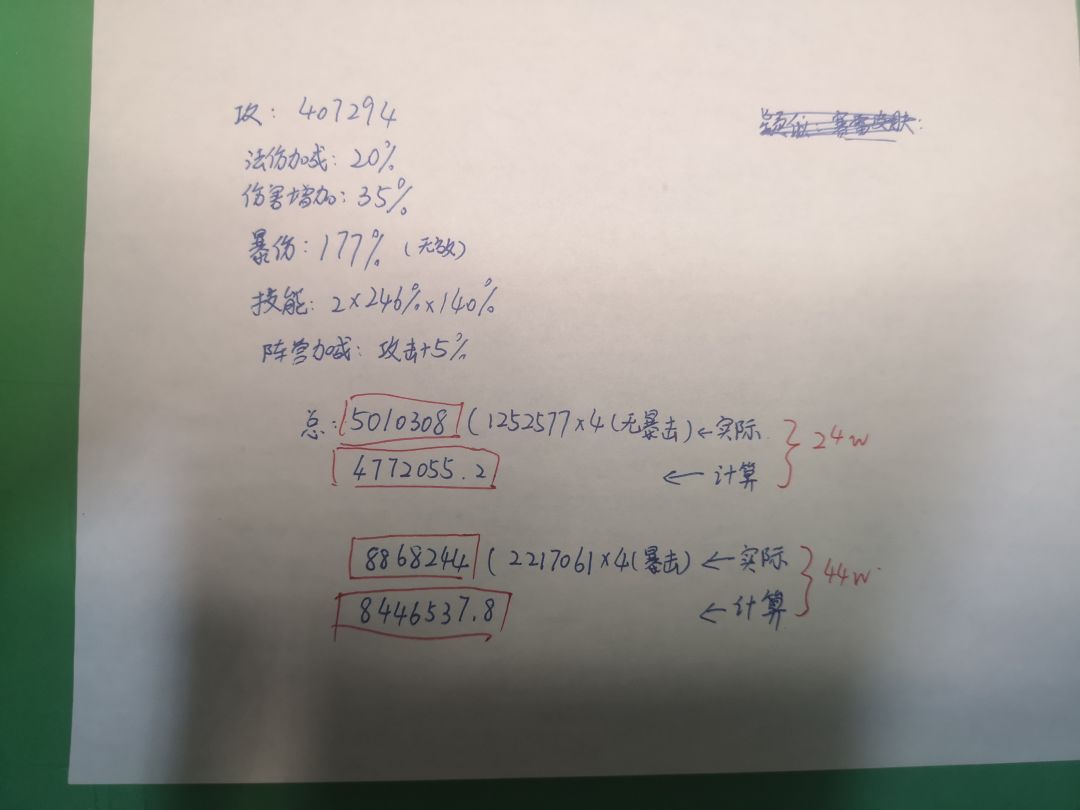 攻: 407294
法伤加成: 20%
伤害增加: 35%
暴伤: 177% (无效)
技能: 2×246%×140%
阵营加成: 攻击+5%
总: 5010308 (1252577×4(无暴击)←实际 24w
4772055.2 ←计算
8868244 (2217061×4(暴击) ←实际 44w
8446537.8 ←计算